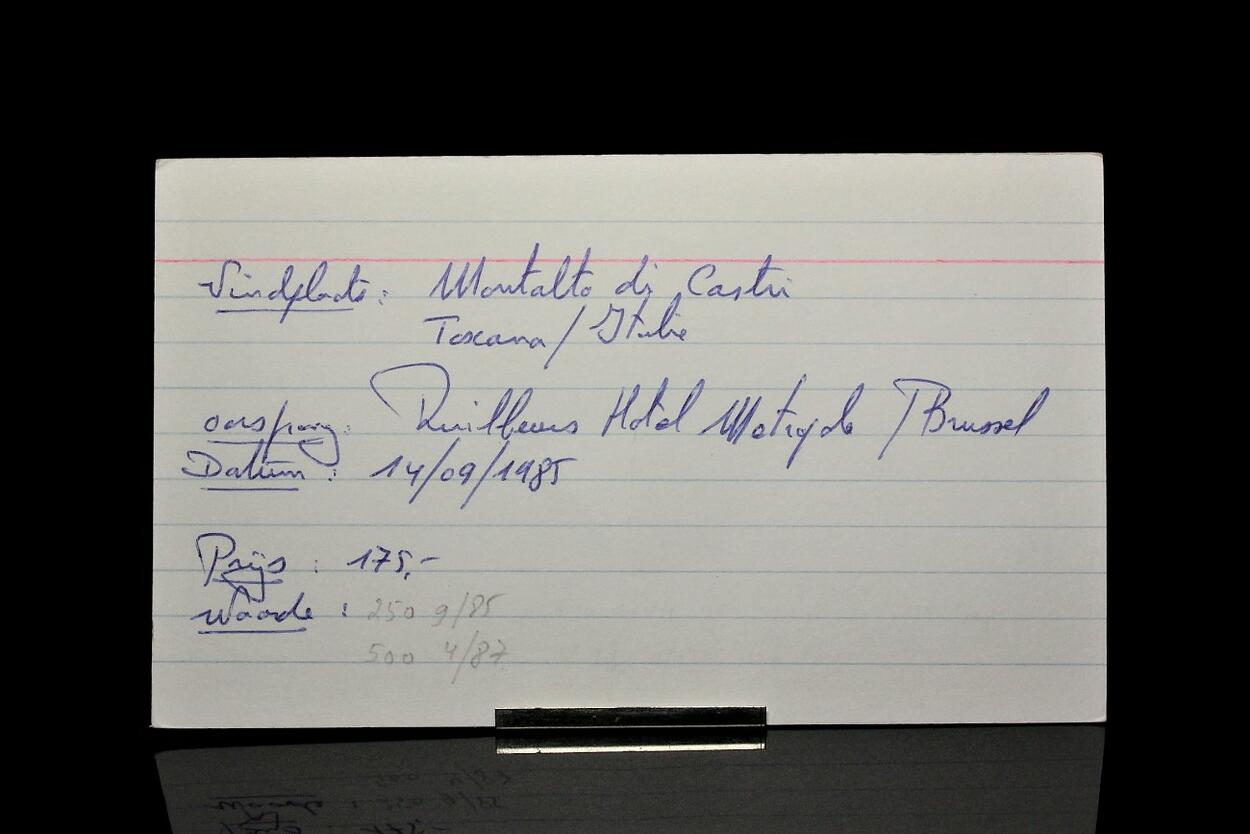 Vindplaats: Montalto di Castri
Toscana/Italie
oorsprong: Ruilbeurs Hotel Metropole / Brussel
Datum: 14/09/1985
Prijs: 175,-
waarde: 250 9/85
500 4/87